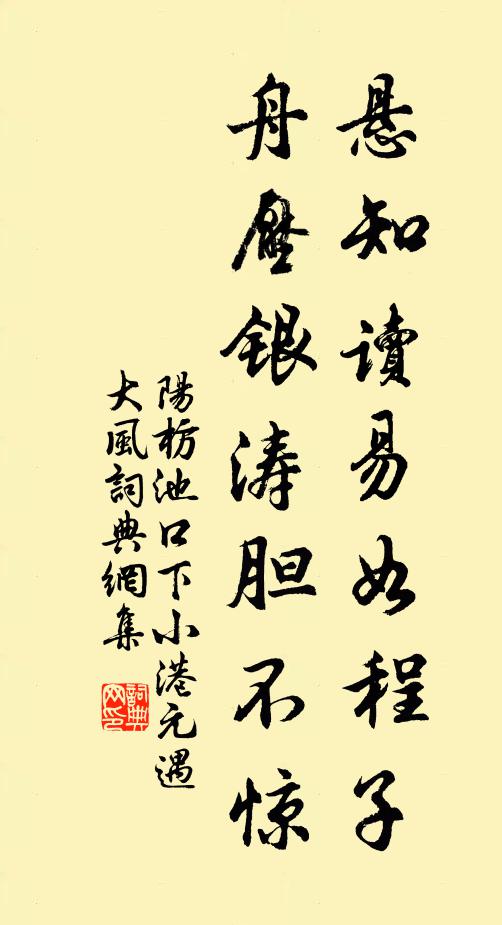 悬知读易如程子
舟压银涛胆不惊
陽枋池口下小港元遇
大風詞典網集
詞典网印